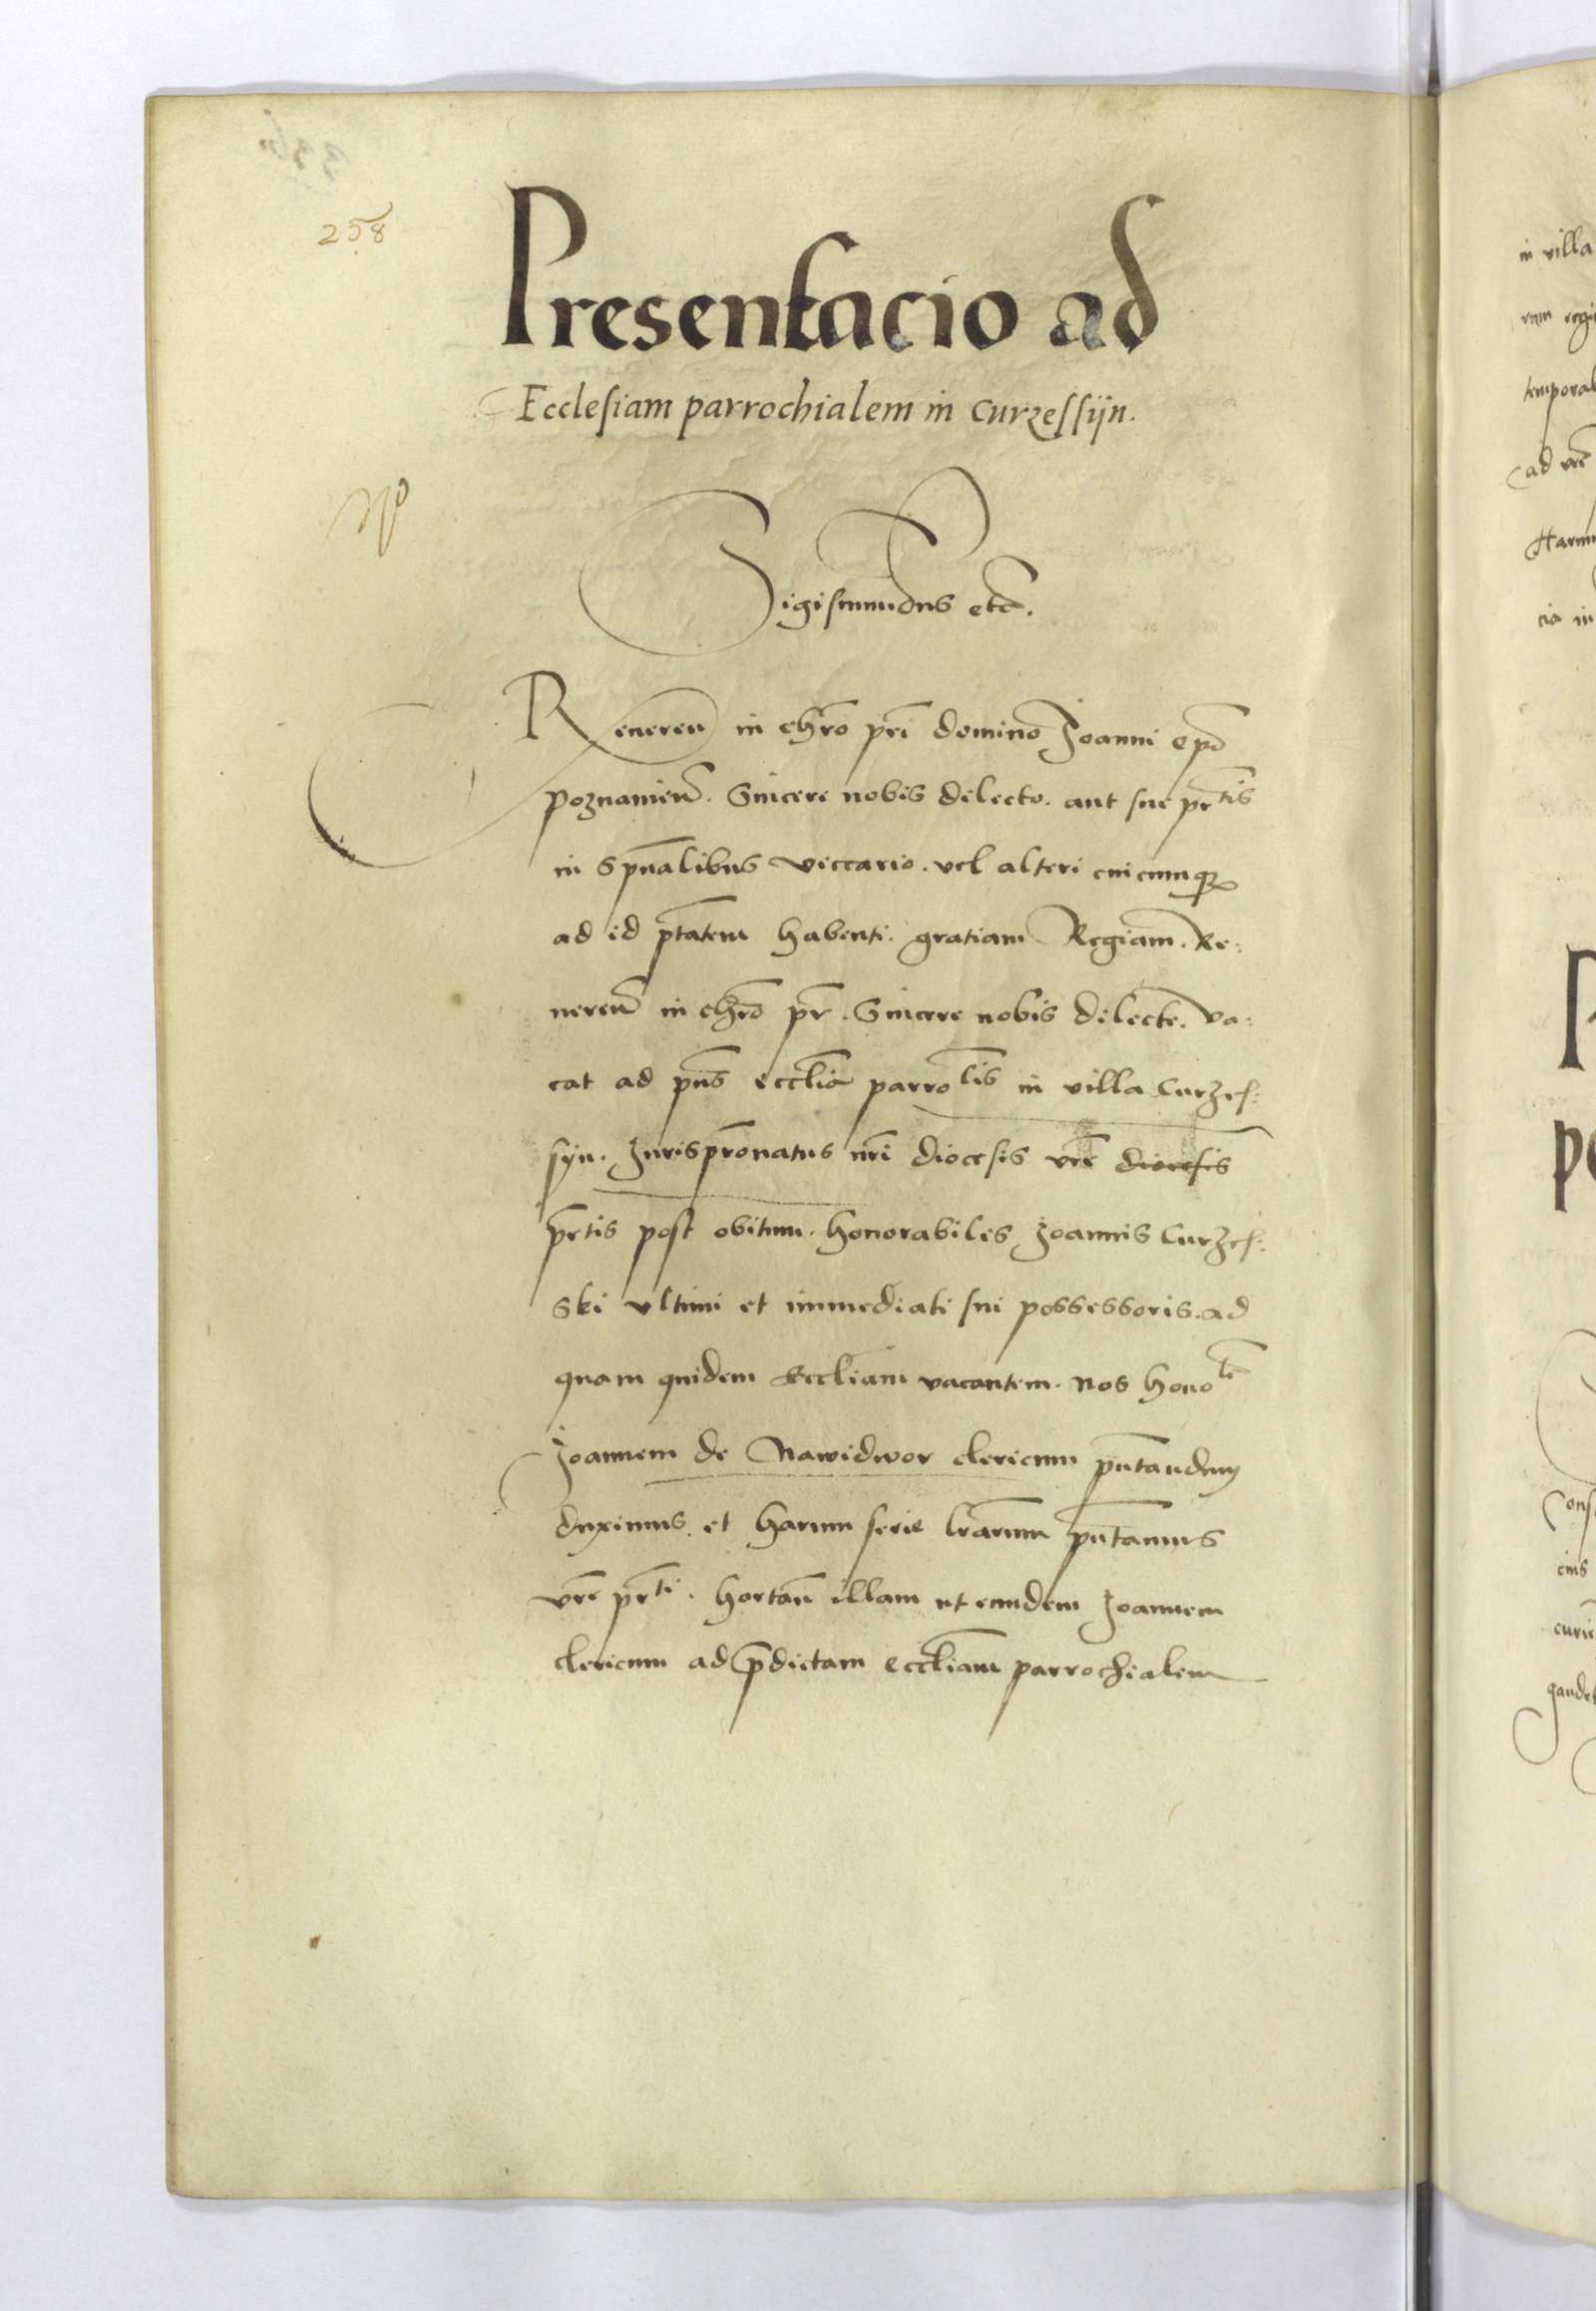 258
Presentacio ad
Ecclesiam parrochialem in Curzessijn.
Sigismundus etc̃.
Reuereñ in chr̃o pr̃i domino Joanni ep̃o
Poznanień. Sincere nobis dilecto. aut sue pr̃tis
in sp̃ualibus viccario. vel alteri cuicumqȝ
ad id p̃tatem habenti. gratiam Regiam. Re:
uereñ in chr̃o pr̃. Sincere nobis dilecte. va:
cat ad pñs eccl̃ia parrolis in villa Curzes:
syn. Jurispr̃onatus nr̃i diocesis vr̃e diocesis
pr̃tis post obitum. honorabilis Joannis Curzes:
ski vltimi et immediati sui possessoris. ad
quam quidem Eccl̃iam vacantem. nos honole͂
Joannem de Nawidwor clericum pñtandum
duximus. et harum serie lr̃arum pñtamus
vr̃e pr̃ti. hortañ illam ut eundem Joannem
clericum ad p̃dictam eccl̃iam parrochialem
in villa
temporal
ad vr̃e
cia in
P
Cons
eius
gaudet